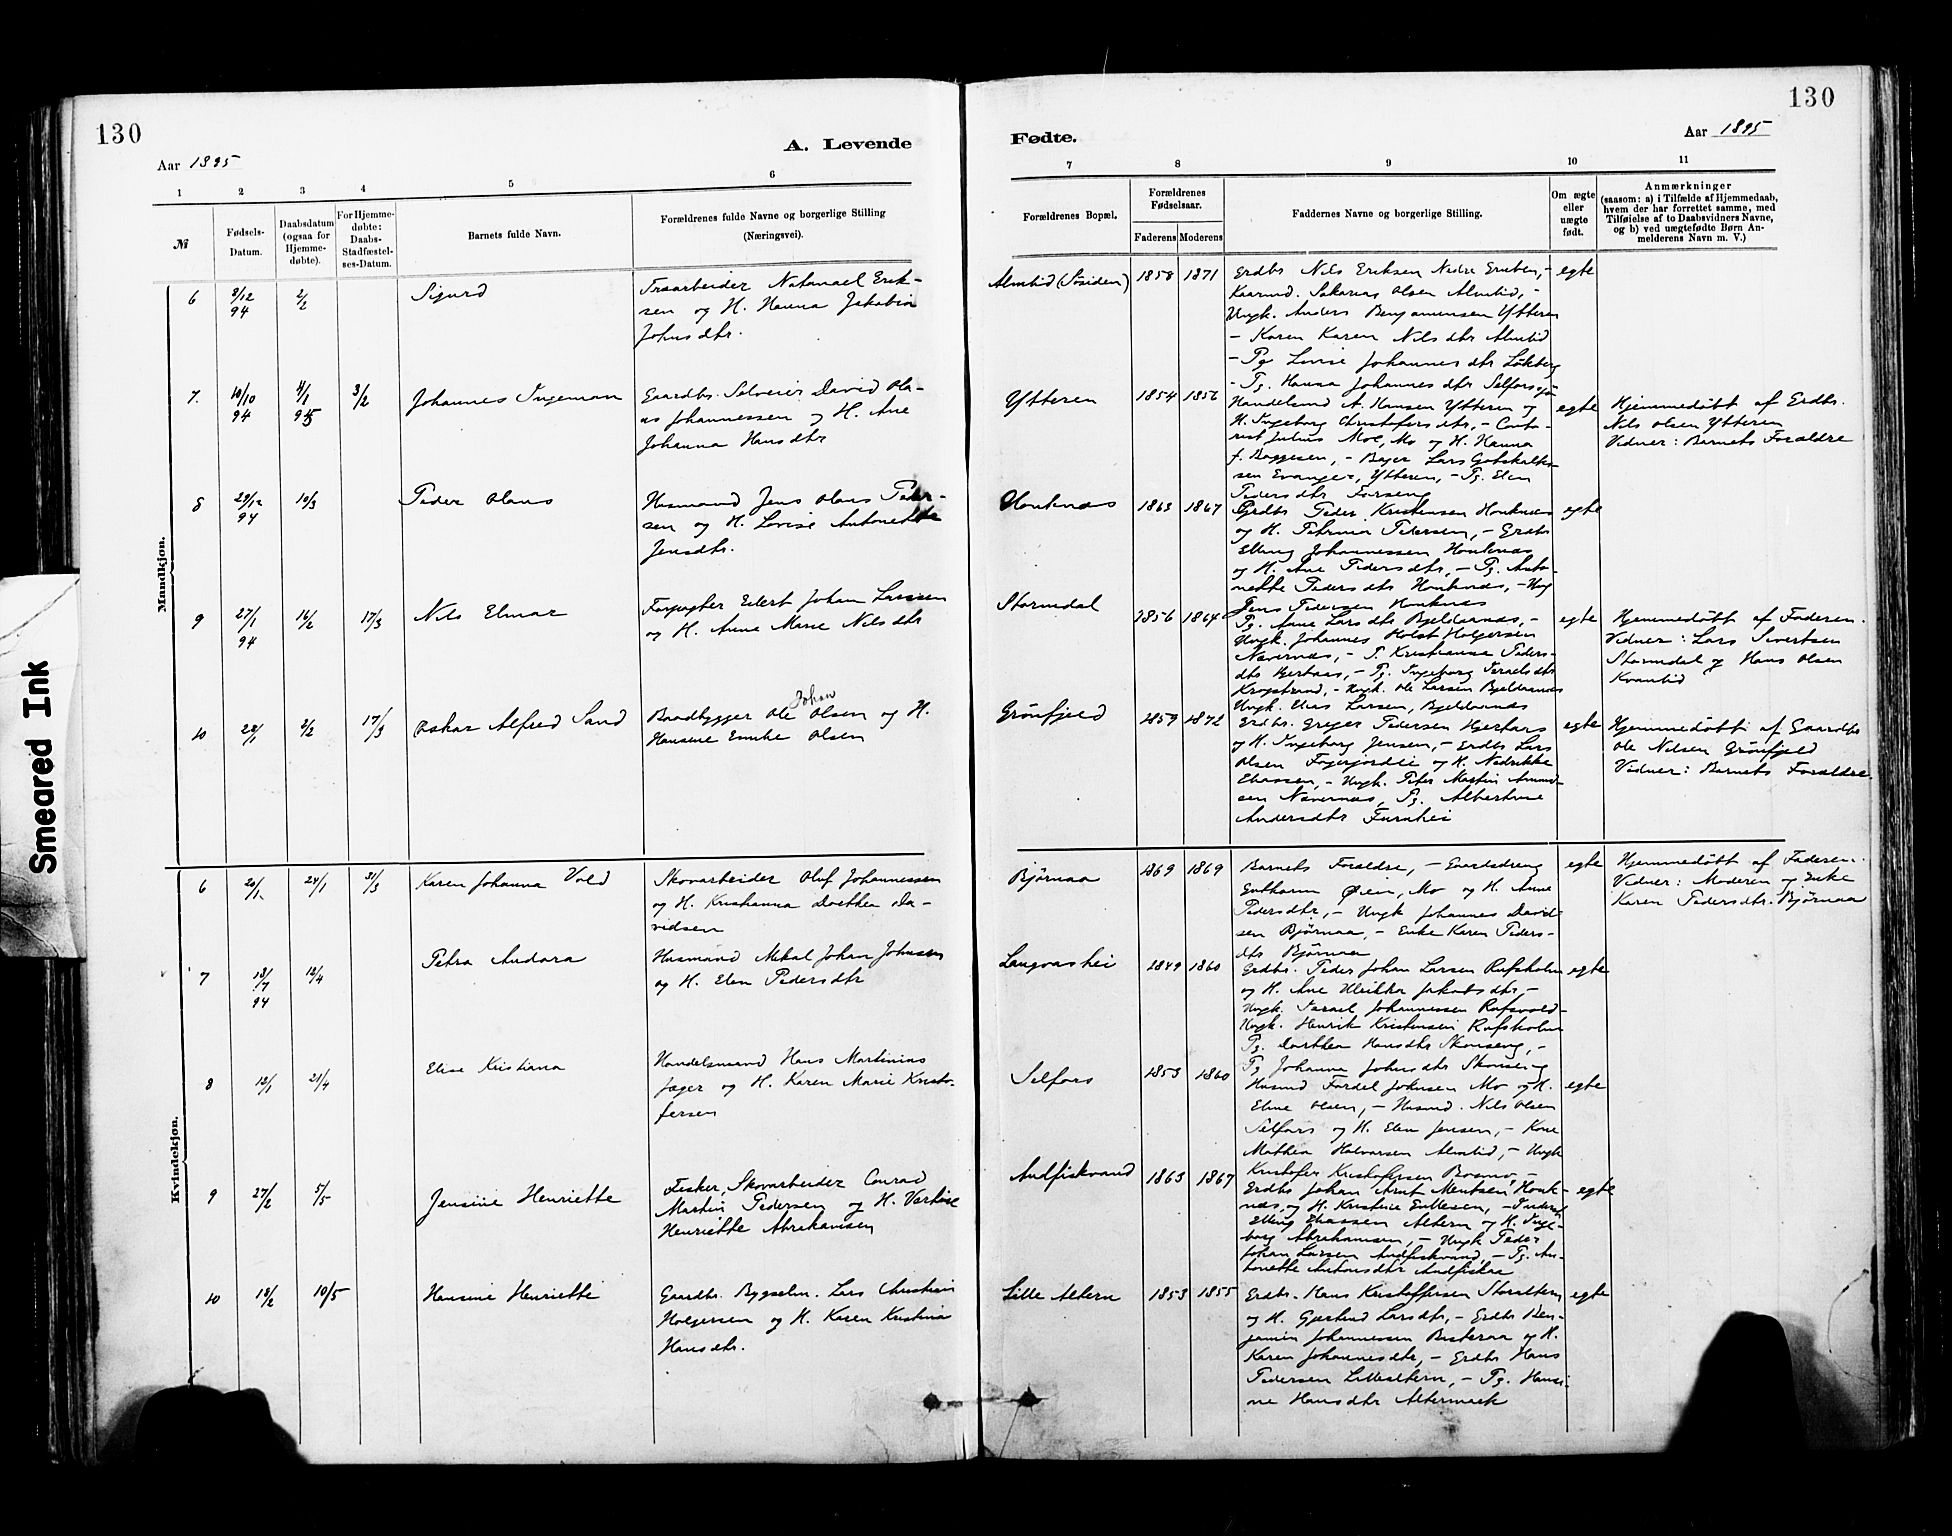 130
130
Aar 1895
A. Levende
Fødte.
Aar 1895
1
2
3
4
5
6
7
8
9
10
11
№
Fødsels-
Datum.
Daabsdatum
(ogsaa for
Hjemme-
døbte).
For Hjemme-
døbte:
Daabs-
Stadfæstel-
ses-Datum.
Barnets fulde Navn.
Forældrenes fulde Navne og borgerlige Stilling
(Næringsvei).
Forældrenes Bopæl.
Forældrenes
Fødselsaar.
Faderens
Moderens
Faddernes Navne og borgerlige Stilling.
Om ægte
eller
uægte
født.
Anmærkninger
(saasom: a) i Tilfælde af Hjemmedaab,
hvem der har forrettet samme, med
Tilføielse af to Daabsvidners Navne,
og b) ved uægtefødte Børn An-
melderens Navn m. V.)
Mandkjøn.
6
9/12
94
2/2
Sigurd
Træarbeider Natanael Erik-
sen og H. Hanna Jakobina
Johnsdtr.
Almlid (Søsiden)
1858
1871
Erdbr Nils Eriksen Nedre
Kaarmd. Sakarias Olsen Almlid, -
Ungk. Anders Benjaminsen Ytteren
- Konen Karen Nilsdtr Almlid
- Pg Lovise Johannesdtr Løkberg
- Pg. Hanna Johannesdtr Selfors
egte
7.
10/10
94
4/1
95
3/2
Johannes Ingeman
Gaardbr. Selveier David Ola-
us Johannessen og H. Ane
Johanna Hansdtr
Ytteren
1854
1856
Handelsmd A. Hansen Ytteren og
H. Ingeborg Christofersdtr, - Conto-
rist Julius Moe, Mo og H. Hanna
f. Baggesen, - Bager Lars Gotskalk-
sen Evanger, Ytteren, - Pg. Elen
Pedersdtr Forseng
egte
Hjemmedøbt af Erdbr.
Nils Olsen Ytteren
Vidner: Barnets Forældre
8
29/12
94
10/3
Peder Olaus
Husmand Jens Olaus Peder-
sen og H. Lovise Antonette
Jensdtr.
Hauknæs
1863
1867
Grdbr Peder Kristensen Hauknæs
og H. Petrina Pedersen, - Grdbr
Elling Johannessen Hauknæs
og H. Ane Pedersdtr, - Pg. Anto-
nette Pedersdtr Hauknæs, - Ung
Jens Pedersen Hauknæs
egte
9
27/1
94
16/2
17/3
Nils Elmar
Forpagter Edert Johan Larssen
og H. Anne Marie Nilsdtr
Stormdal
1856
1864
Pg. Anne Larsdtr Bjeldaanæs, -
Ungk. Johannes Holst Holgersen
Nævernæs, - P. Kristianna Peders-
dtr Hjertaas, - Pg. Ingeborg Israelsdtr
Krogstrand, - Ungk. Ole Larsen Bjeldaanæs
Ungk. Elias Larsen, Bjeldaanæs
egte
Hjemmedøbt af Faderen.
Vidner: Lars Sivertsen
Stormdal og Hans Olsen
Kvanlid
10
28/1
2/2
17/3
Oskar Alfred Sand
Johan
Baadbygger Ole Olsen og H.
Hansine Emilie Olsen
Grønfjeld
1859
1872
Erdbr. Greger Pedersen Hjertaas
og H. Ingeborg Jensen, - Erdbr Lars
Olsen Fagerjordlii og H. Nedrikke
Eliassen, - Ungk. Peter Martin Amund-
sen Nævernæs, Pg. Albertine
Andersdtr Furuhei
egte
Hjemmedøbt af Gaardbr
Ole Nilsen Grønfjeld
Vidner: Barnets Forældre.
Kvindekjøn.
6
20/1
24/1
31/3
Karen Johanna Vold
Skovarbeider Oluf Johannessen
og H. Kristianna Dorthea Da-
vidsen
Bjørnaa
1869
1869
Barnets Forældre, -
Øien, Mo og H. Anne
Pedersdtr, - Ungk Johannes David-
sen Bjørnaa, - Enke Karen Peders-
dtr Bjørnaa
egte
Hjemmedøbt af Faderen.
Vidner: Moderen og Enke
Karen Pedersdtr. Bjørnaa
7
18/7
94
12/4
Petra Andora
Husmand Mekal Johan Johnsen
og H. Elen Pedersdtr
Langvashei
1849
1860
Erdbr. Peder Johan Larsen Rufsholm
og H. Ane Ulrikka Jakobsdtr -
Ungk. Israel Johannessen Rufsvold -
Ungk. Henrik Kristensen Rufsholm
Pg. Dorthea Hansdtr Skonseng, -
Pg Johanna Johnsdtr Skonseng
egte
8
12/1
21/4
Elise Kristiana
Handelsmand Hans Martinius
Jæger og H. Karen Marie Kristo-
fersen
Selfors
1853
1860
Husmd Fordel Johnsen Mo og H.
Eline Olsen, - Husmd. Nils Olsen
Selfors og H. Elen Jensen, - Kone
Mathea Halvorsen Almlid, - Ungk
Kristofer Kristoffersen Bosmo, -
egte
9
27/2
5/5
Jensine Henriette
Fisker, Skovarbeider Conrad
Martin Pedersen og H. Vartine
Henriette Abrahamsen
Andfiskvand
1863
1867
Erdbr Johan Arnt Mentsen Hauk-
næs, og H. Kristine Entlesen, -
Elling Eliassen Altern og H. Inge-
borg Abrahamsen, - Ungk Peder
Johan Larsen Andfiskvand, - Pg. An-
tonette Antonsdtr Andfiskaa
egte
10
18/2
10/5
Hansine Henriette
Gaardbr. Bygselm. Lars Christian
Holgersen og H. Karen Kristina
Hansdtr.
Lille Altern
1853
1855
Erdbr. Hans Kristoffersen Storaltern
og H. Gjertrud Larsdtr, - Erdbr Ben-
jamin Johannessen Bustneraa og H.
Karen Johannesdtr, - Erdbr Hans
Pedersen Lillealtern, - Pg. Hansi-
ne Hansdtr Altermark
egte
Smeared Ink